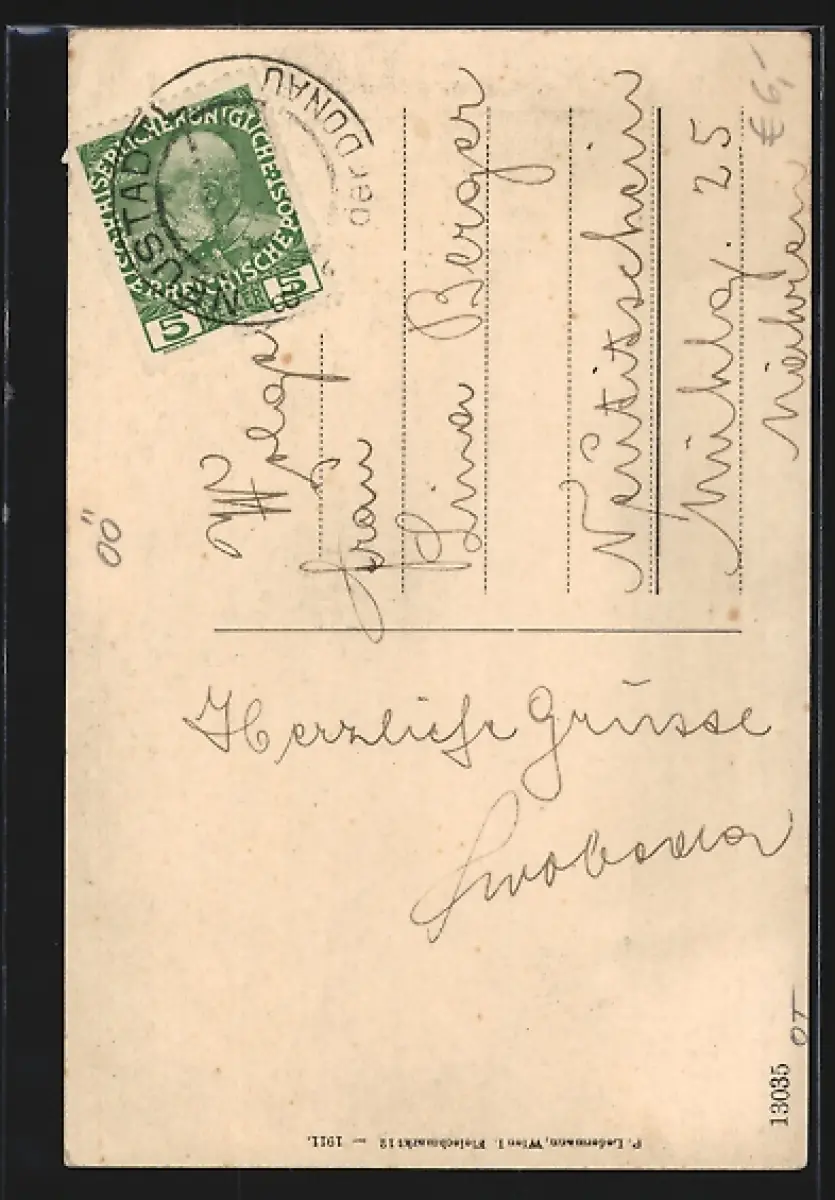 KAISERLICHE KÖNIGLICHE ÖSTERREICHISCHE
5 5
NEUSTADTL
der DONAU
€ 6,-
Wolgeb
Frau
Lina Berger
Neutitschein
Mühlg. 25
Mähren
ÖÖ
Herzliche Grüsse
Swoboda
OT
13035
P. Ledermann, Wien I. Fleischmarkt 12 — 1911.